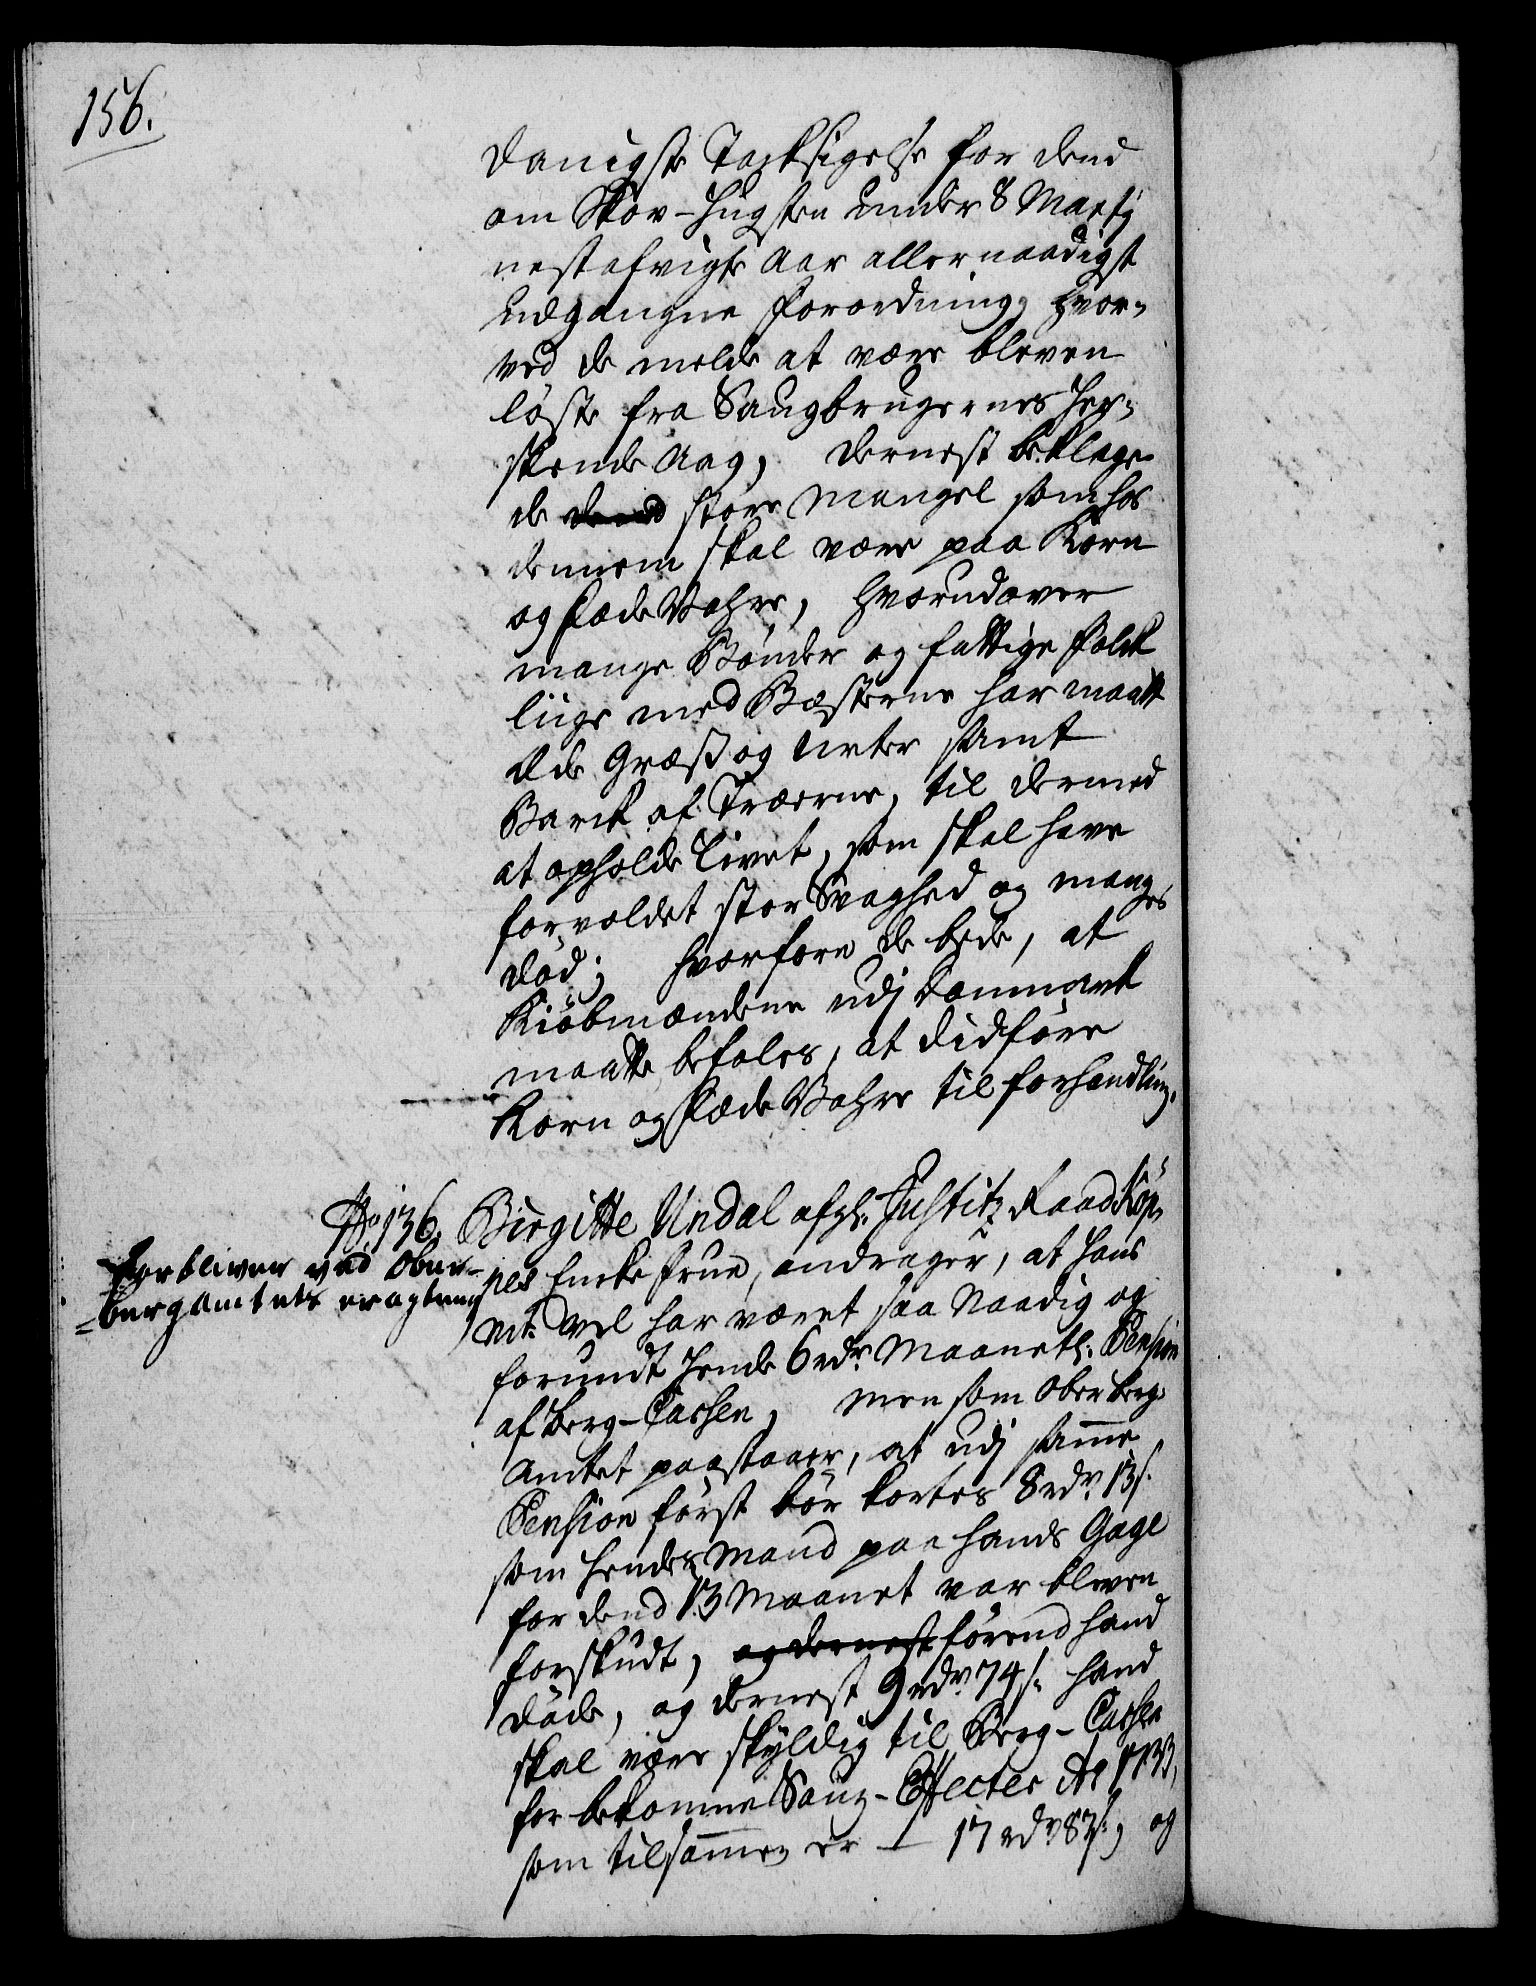 156.
danigste Tacksigelse for dend
om Skov-Hugsten under 8 Martij
nestafvigte Aar allernaadigst
udgangne Forordning, hvor-
ved de melde at være bleven
løste fra Saugbrugernes Her-
skende Aag, dernest beklage
de dend store Mangel som hos
dennem skal være paa Korn
og FædeVahre, hvorudover
mange Bønder og fattige Folck
liige med Bæsterne har maatt
æde Græs og Urter samt
Barck af Træerne, til dermed
at opholde Livet, som skal have
forvoldet stor Svaghed og manges
død; hvorfore de bede, at
Kiøbmændene udj Danmark
maatte befales, at didføre
Korn og FædeVahre til forhandling.
No. 136. Birgitte Undal afgl. Justitz Raad Køp-
pes Encke Frue, andrager, at Hans
Mt. vel har været saa Naadig og
forundt Hende 6 rdr. Maanetl. Pension
af Berg-Cassen, men som Ober Berg
Amtet paastaaer, at udj samme
Pension først bør kortes 8 rdr. 13 s.
som Hendes Mand paa hands Gage
for dend 13 Maanet var bleven
forskudt, og dernest førend hand
døde, og dernest 9 rdr. 74 s. hand
skal være skyldig til Berg-Cassen
for bekomne Saug-Effecter Ao 1733,
som tilsammen er - 17 rdr. 87 s., og
Forbliver ved Ober-
bergamtets eragtning